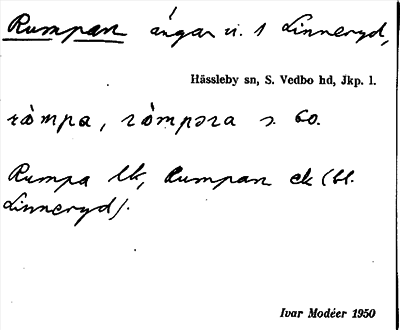 Rumpan ångar vi. 1 Linneryd,
Hässleby sn, S. Vedbo hd, Jkp. l.
ròmpa, ròmpəra s. 60.
Rumpa lk, Rumpan ek (bl.
Linneryd).
Ivar Modéer 1950